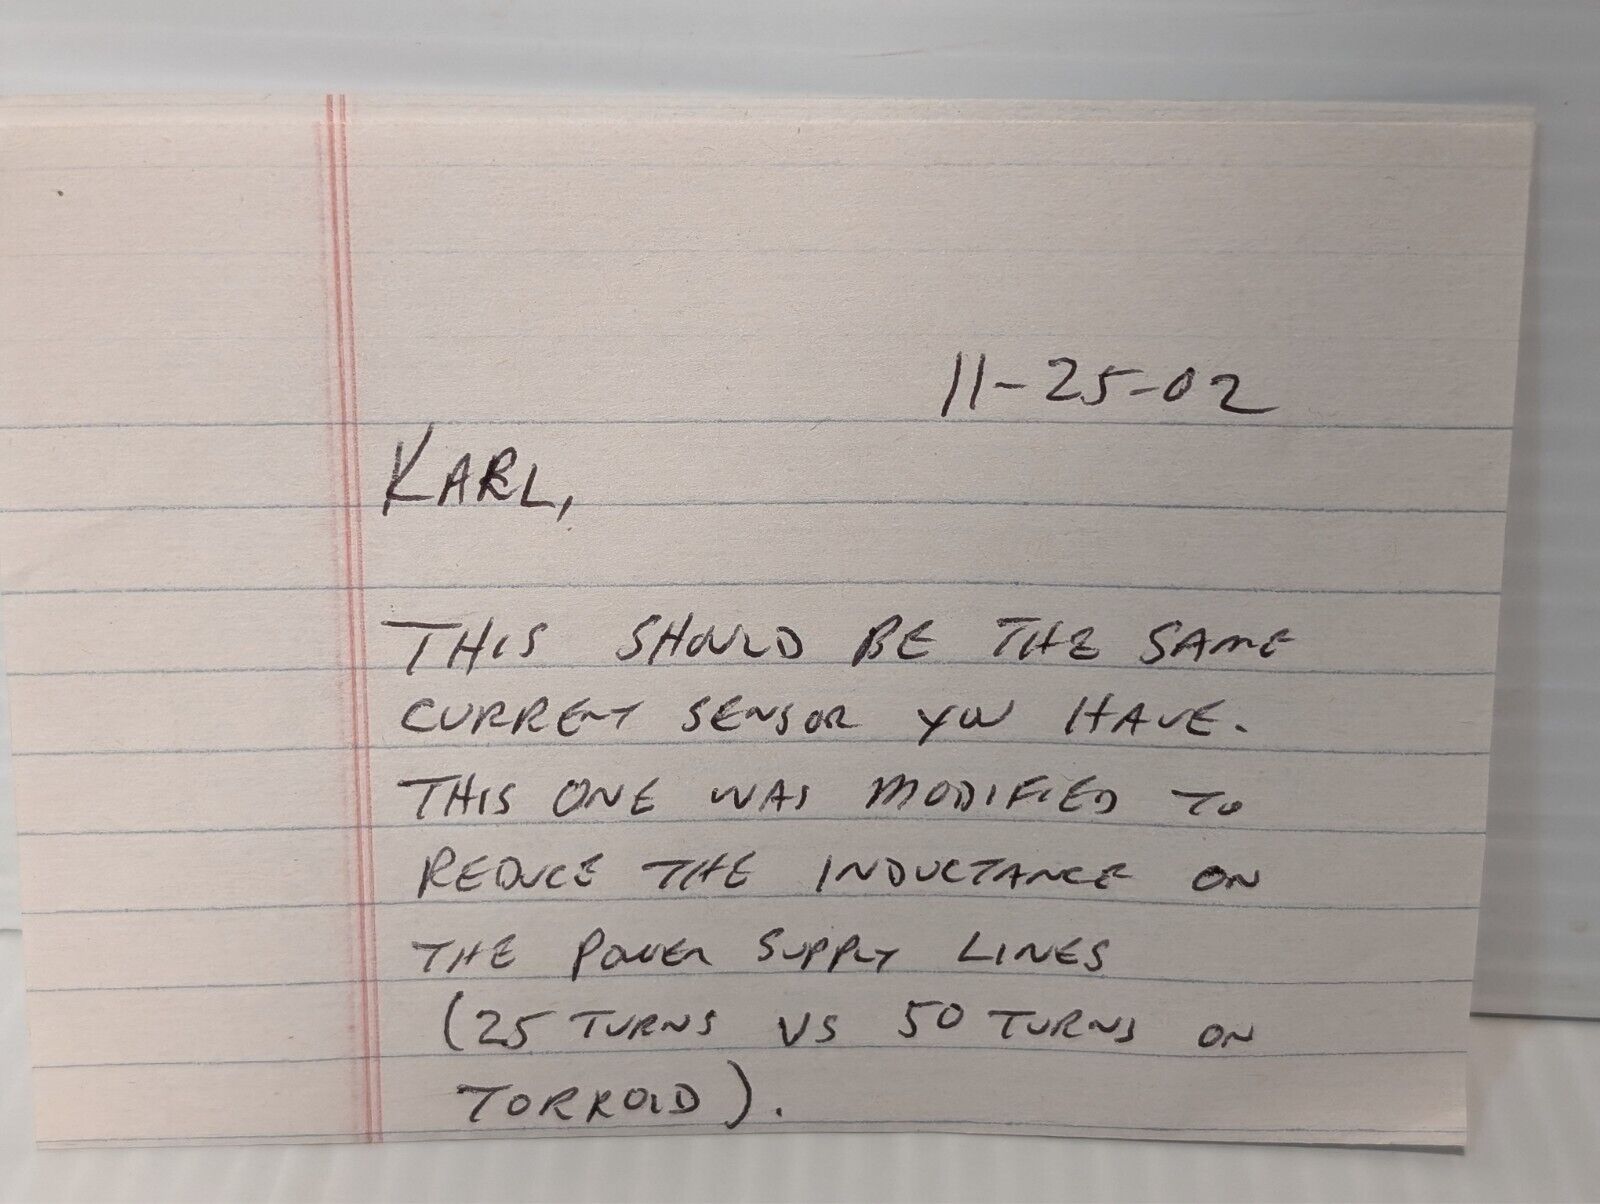 11-25-02
KARL,
THIS SHOULD BE THE SAME
CURRENT SENSOR YOU HAVE.
THIS ONE WAS MODIFIED TO
REDUCE THE INDUCTANCE ON
THE POWER SUPPLY LINES
(25 TURNS VS 50 TURNS ON
TORROID).